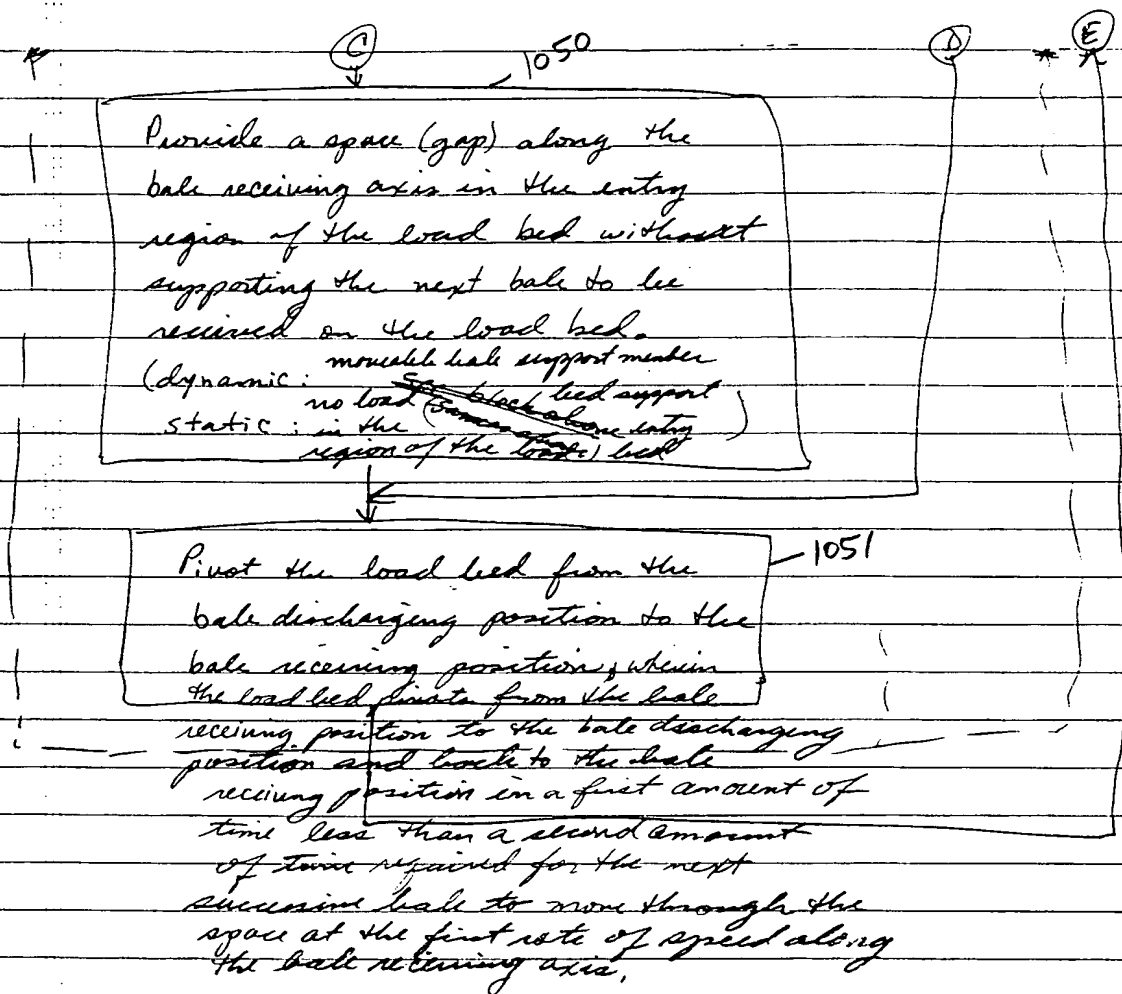 C 1050 D E
Provide a space (gap) along the
bale receiving axis in the entry
region of the load bed without
supporting the next bale to be
received on the load bed.
(dynamic: moveable bale support member
static: no load bed support
in the entry )
region of the bed
1051
Pivot the load bed from the
bale discharging position to the
bale receiving position, wherein
the load bed pivots from the bale
receiving position to the bale discharging
position and back to the bale
receiving position in a first amount of
time less than a second amount
of time required for the next
successive bale to move through the
space at the first rate of speed along
the bale receiving axis.